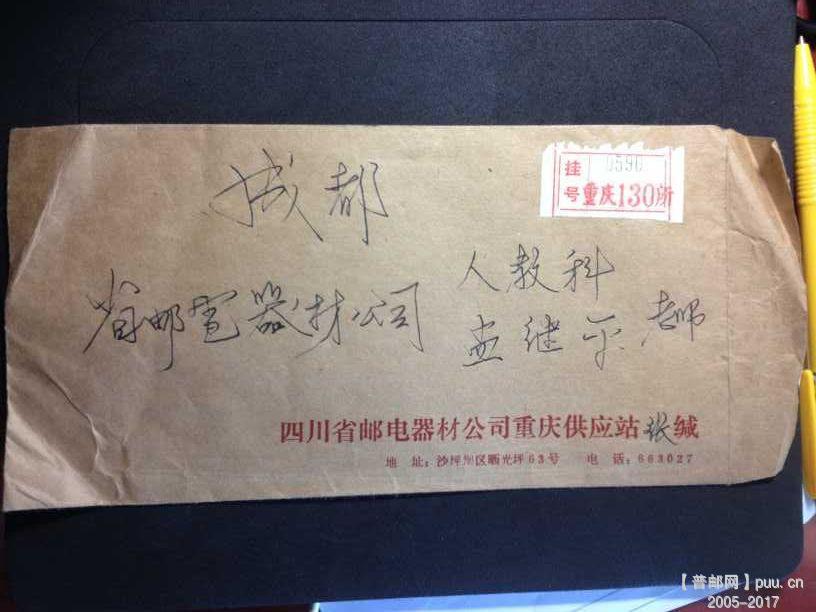 挂 0590
号 重庆130所
成都
省邮電器材公司
人教科
孟继平 老师
四川省邮电器材公司重庆供应站张缄
地 址：沙坪坝区晒光坪63号 电 话：663027
【普邮网】puu.cn
2005-2017